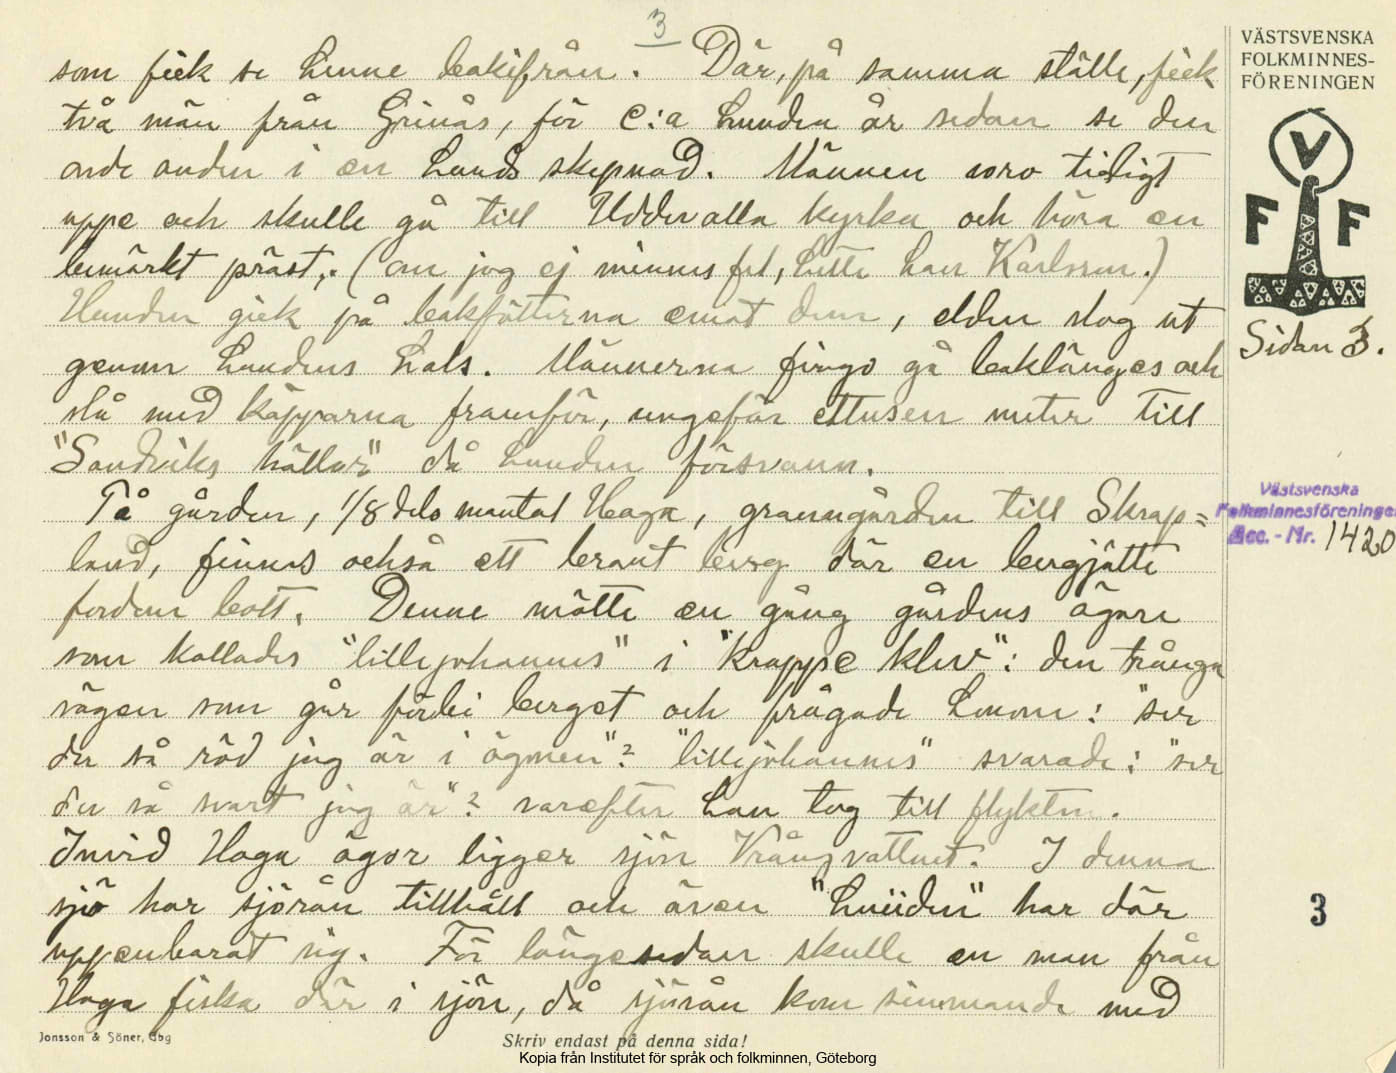 3
som fick se henne bakifrån. Där, på samma ställe, fick
två män från Grinås, för c:a hundra år sedan se den
onde anden i en hunds skepnad. Männen voro tidigt
uppe och skulle gå till Uddevalla kyrka och höra en
bemärkt präst,. (om jag ej minnes fel, hette han Karlsson.)
Hunden gick på bakfötterna emot dem, elden slog ut
genom hundens hals. Männerna fingo gå baklänges och
slå med käpparna framför, ungefär ettusen meter till
"Sandviks hällar" då hunden försvann.
På gården, 1/8 dels mantal Haga, granngården till Skrap=
land, finnes också ett brant berg där en bergjätte
fordom bott. Denne mötte en gång gårdens ägare
som kallades "lillejohannes" i "Krappe klev": den trånga
vägen som går förbi berget och frågade honom: "ser
du så röd jag är i ögonen"? "lillejohannes" svarade: "ser
du så svart jag är"? varefter han tog till flykten.
Invid Haga ägor ligger sjön Vrångvattnet. I denna
sjö har sjörån tillhåll och även "hniiden" har där
uppenbarat sig. För länge sedan skulle en man från
Haga fiska där i sjön, då sjörån kom simmande med
VÄSTSVENSKA
FOLKMINNES-
FÖRENINGEN
V
F F
Sidan 3.
Västsvenska
Folkminnesföreningen
Acc. - Nr. 1420
3
Jonsson & Söner, Gbg
Skriv endast på denna sida!
Kopia från Institutet för språk och folkminnen, Göteborg